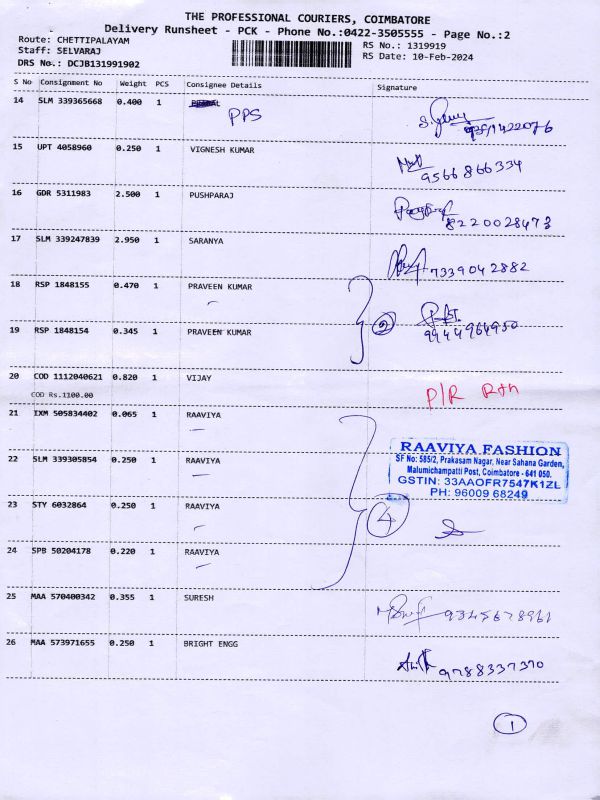 THE PROFESSIONAL COURIERS, COIMBATORE
Delivery Runsheet - PCK - Phone No.:0422-3505555 - Page No.:2
Route: CHETTIPALAYAM
RS No.: 1319919
Staff: SELVARAJ
RS Date: 10-Feb-2024
DRS No.: DCJB131991902
S No Consignment No Weight PCS Consignee Details Signature
14 SLM 339365668 0.400 1
PPS
15 UPT 4058960 0.250 1 VIGNESH KUMAR
9566866334
16 GDR 5311983 2.500 1 PUSHPARAJ
8220028473
17 SLM 339247839 2.950 1 SARANYA
7339042882
18 RSP 1848155 0.470 1 PRAVEEN KUMAR
2
19 RSP 1848154 0.345 1 PRAVEEN KUMAR
9944964950
20 COD 1112040621 0.820 1 VIJAY
P/R Rtn
COD Rs.1100.00
21 IXM 505834402 0.065 1 RAAVIYA
RAAVIYA FASHION
SF No: 585/2, Prakasam Nagar, Near Sahana Garden,
Malumichampatti Post, Coimbatore - 641 050.
GSTIN: 33AAOFR7547K1ZL
PH: 96009 68249
22 SLM 339305854 0.250 1 RAAVIYA
23 STY 6032864 0.250 1 RAAVIYA
4
24 SPB 50204178 0.220 1 RAAVIYA
25 MAA 570400342 0.355 1 SURESH
9345678961
26 MAA 573971655 0.250 1 BRIGHT ENGG
9788337370
1